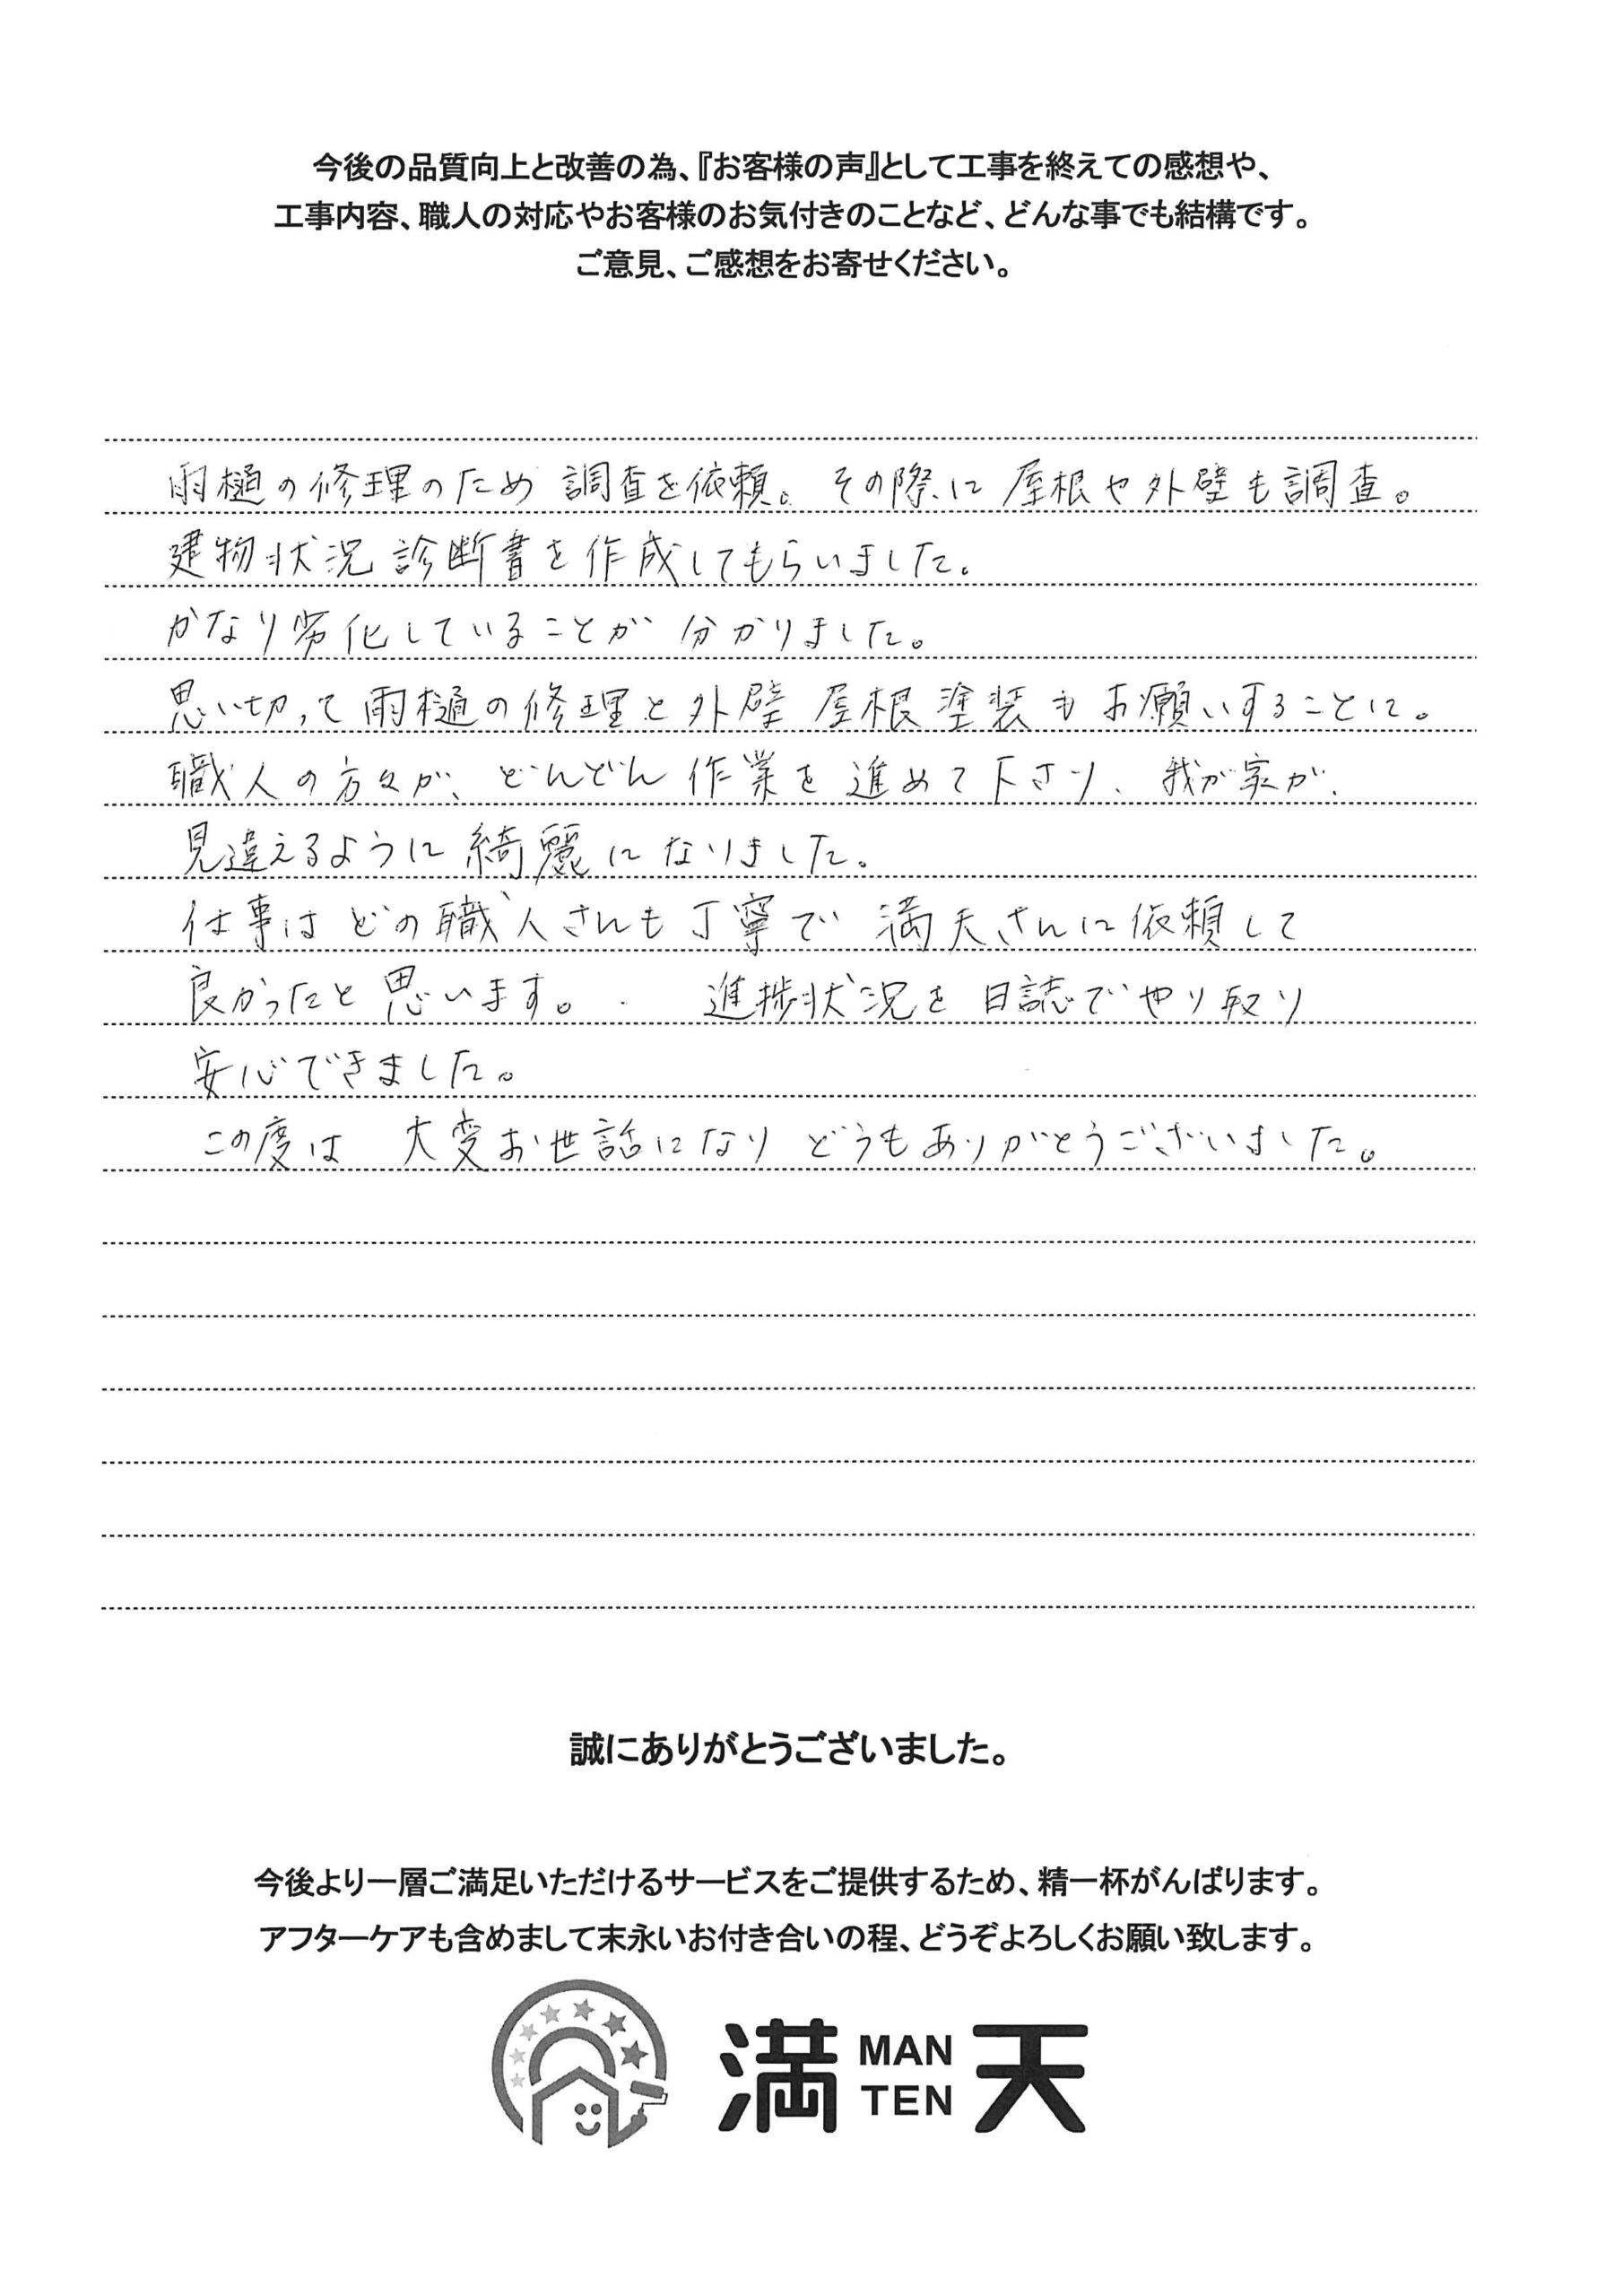 今後の品質向上と改善の為、『お客様の声』として工事を終えての感想や、
工事内容、職人の対応やお客様のお気付きのことなど、どんな事でも結構です。
ご意見、ご感想をお寄せください。
雨樋の修理のため 調査を依頼。その際に 屋根や外壁も調査。
建物状況 診断書を作成してもらいました。
かなり劣化していることが 分かりました。
思い切って 雨樋の修理と外壁 屋根塗装もお願いすることに。
職人の方々が、どんどん作業を進めて下さり、我が家が、
見違えるように綺麗になりました。
仕事はどの職人さんも丁寧で 満天さんに依頼して
良かったと思います。 進捗状況を日誌でやり取り
安心できました。
この度は 大変お世話になり どうもありがとうございました。
誠にありがとうございました。
今後より一層ご満足いただけるサービスをご提供するため、精一杯がんばります。
アフターケアも含めまして末永いお付き合いの程、どうぞよろしくお願い致します。
満 MAN TEN 天